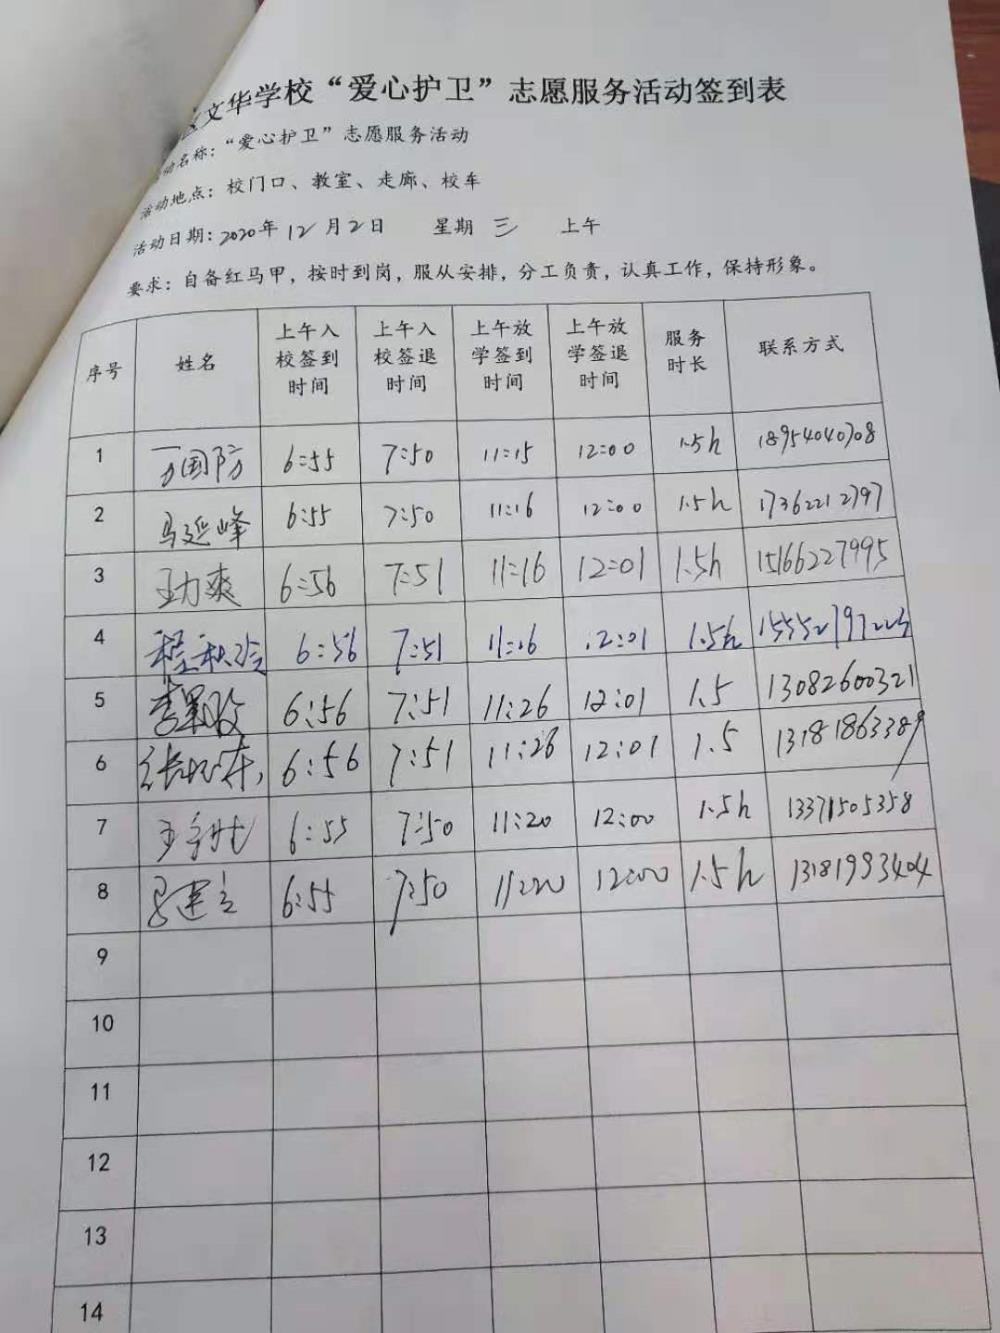 区文华学校“爱心护卫”志愿服务活动签到表
动名称：“爱心护卫”志愿服务活动
活动地点：校门口、教室、走廊、校车
活动日期：2020年12月2日 星期三 上午
要求：自备红马甲，按时到岗，服从安排，分工负责，认真工作，保持形象。
序号 姓名 上午入校签到时间 上午入校签退时间 上午放学签到时间 上午放学签退时间 服务时长 联系方式
1 万国防 6:55 7:50 11:15 12:00 1.5h 18954040708
2 马延峰 6:55 7:50 11:16 12:00 1.5h 17362212797
3 王力爽 6:56 7:51 11:16 12:01 1.5h 15166227995
4 6:56 7:51 11:16 12:01 1.5h
5 6:56 7:51 11:26 12:01 1.5 13082600321
6 6:56 7:51 11:26 12:01 1.5 13181863389
7 6:55 7:50 11:20 12:00 1.5h 13371505358
8 6:55 7:50 11:20 12:00 1.5h 13181993404
9
10
11
12
13
14